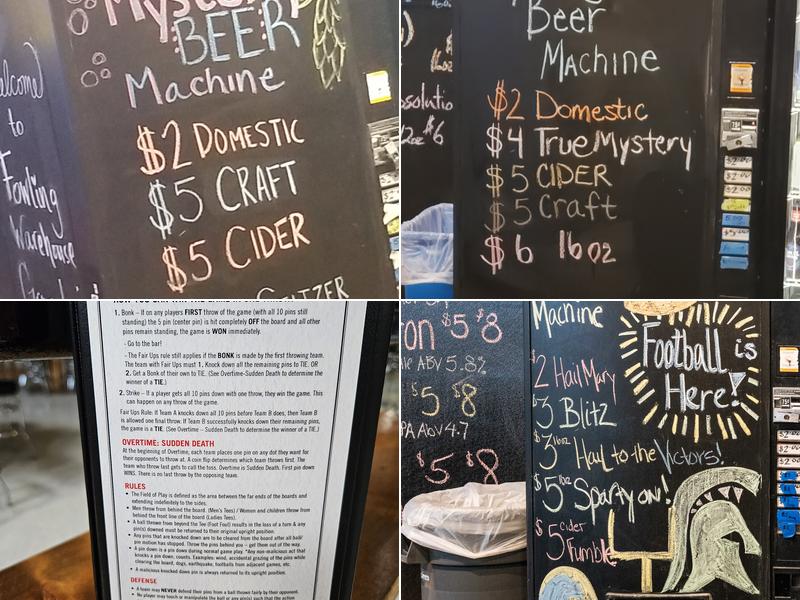 Mystery
BEER
Machine
$2 DOMESTIC
$5 CRAFT
$5 CIDER
to
Fowling
Warehouse
Beer
Machine
$2 Domestic
$4 True Mystery
$5 CIDER
$5 Craft
$6 16oz
12oz $6
$2.00
$2.00
$2.00
1. Bonk – If on any players FIRST throw of the game (with all 10 pins still
standing) the 5 pin (center pin) is hit completely OFF the board and all other
pins remain standing, the game is WON immediately.
- Go to the bar!
- The Fair Ups rule still applies if the BONK is made by the first throwing team.
The team with Fair Ups must 1. Knock all the remaining pins to TIE. OR
2. Get a Bonk of their own to TIE. (See Overtime-Sudden Death to determine the
winner of a TIE.)
2. Strike – If a player gets all 10 pins down with one throw, they win the game. This
can happen on any throw of the game.
Fair Ups Rule: If Team A knocks down all 10 pins before Team B does, then Team B
is allowed one final throw. If Team B successfully knocks down their remaining pins,
the game is a TIE. (See Overtime – Sudden Death to determine the winner of a TIE.)
OVERTIME: SUDDEN DEATH
At the beginning of Overtime, each team places one pin on any dot they want for
their opponents to throw at. A coin flip determines which team throws first. The
team who throw last gets to call the toss. Overtime is Sudden Death. First pin down
WINS. There is no last throw by the opponent team.
RULES
• The Field of Play is defined as the area between the far ends of the boards and
extending indefinitely to the sides.
• Men throw from behind the board. (Men's Tees) / Women and children throw from
behind the front line of the board (Ladies Tees).
• A ball thrown from beyond the Tee (Foot Foul) results in the loss of a turn & any
pin(s) downed must be returned to their original upright position.
• Any pins that are knocked down are to be cleared from the board after all ball/
pin motion has stopped. Throw the pins behind you – get them out of the way.
• A pin down is a pin down during normal game play. *Any non-malicious act that
knocks a pin down, counts. Examples: wind, accidental grazing of the pins while
clearing the board, dogs, earthquake, footballs from adjacent games, etc.
• A malicious knocked down pin is always returned to its upright position.
DEFENSE
• A team may NEVER defend their pins from a ball thrown fairly by their opponent.
$5 $8
ABV 5.8%
$5 $8
PA ABV 4.7
$5 $8
Machine
$2 Hail Mary
$3 Blitz
$3 16oz Hail to the Victors!
$5 16oz Sparty on!
$5 Cider Fumble
Football is
Here!